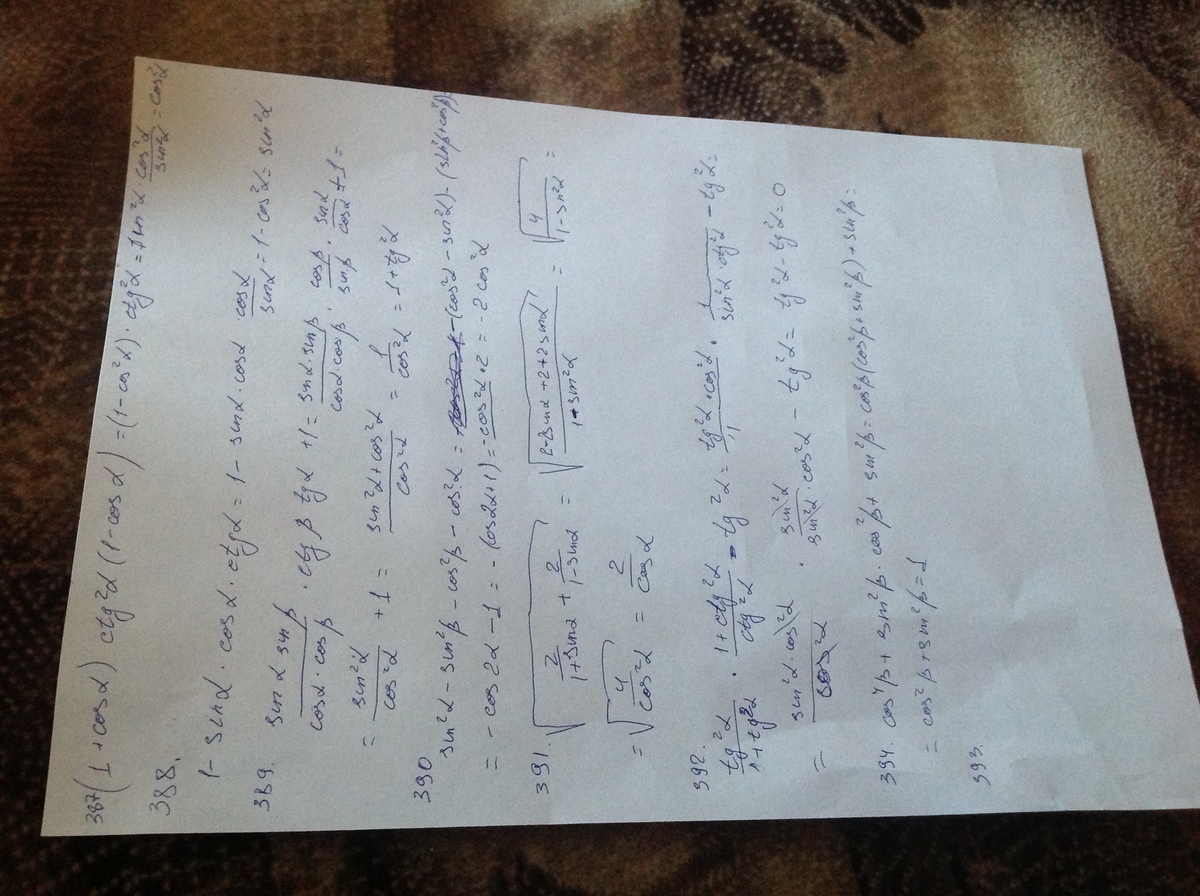 387 (1+cosα) ctg²α (1-cosα) = (1-cos²α)·ctg²α = sin²α · cos²α/sin²α = cos²α
388.
1 - sinα · cosα · ctgα = 1 - sinα · cosα · cosα/sinα = 1 - cos²α = sin²α
389.
sinα sinβ/cosα · cosβ · ctgβ tgα + 1 = sinα·sinβ/cosα·cosβ · cosβ/sinβ · sinα/cosα + 1 =
= sin²α/cos²α + 1 = sin²α+cos²α/cos²α = 1/cos²α = 1+tg²α
390
sin²α - sin²β - cos²β - cos²α = -(cos²α - sin²α) - (sin²β+cos²β) =
= -cos2α - 1 = -(cos2α+1) = -cos²α·2 = -2cos²α
391. √(2/1+sinα + 2/1-sinα) = √(2-2sinα+2+2sinα/1-sin²α) = √(4/1-sin²α) =
= √(4/cos²α) = 2/cosα
392.
tg²α/1+tg²α · 1+ctg²α/ctg²α - tg²α = tg²α·cos²α/1 · 1/sin²α·ctg²α - tg²α =
= sin²α·cos²α/cos²α · sin²α/sin²α·cos²α - tg²α = tg²α - tg²α = 0
394. cos⁴β + sin²β · cos²β + sin²β = cos²β(cos²β+sin²β)+sin²β =
= cos²β+sin²β = 1
393.